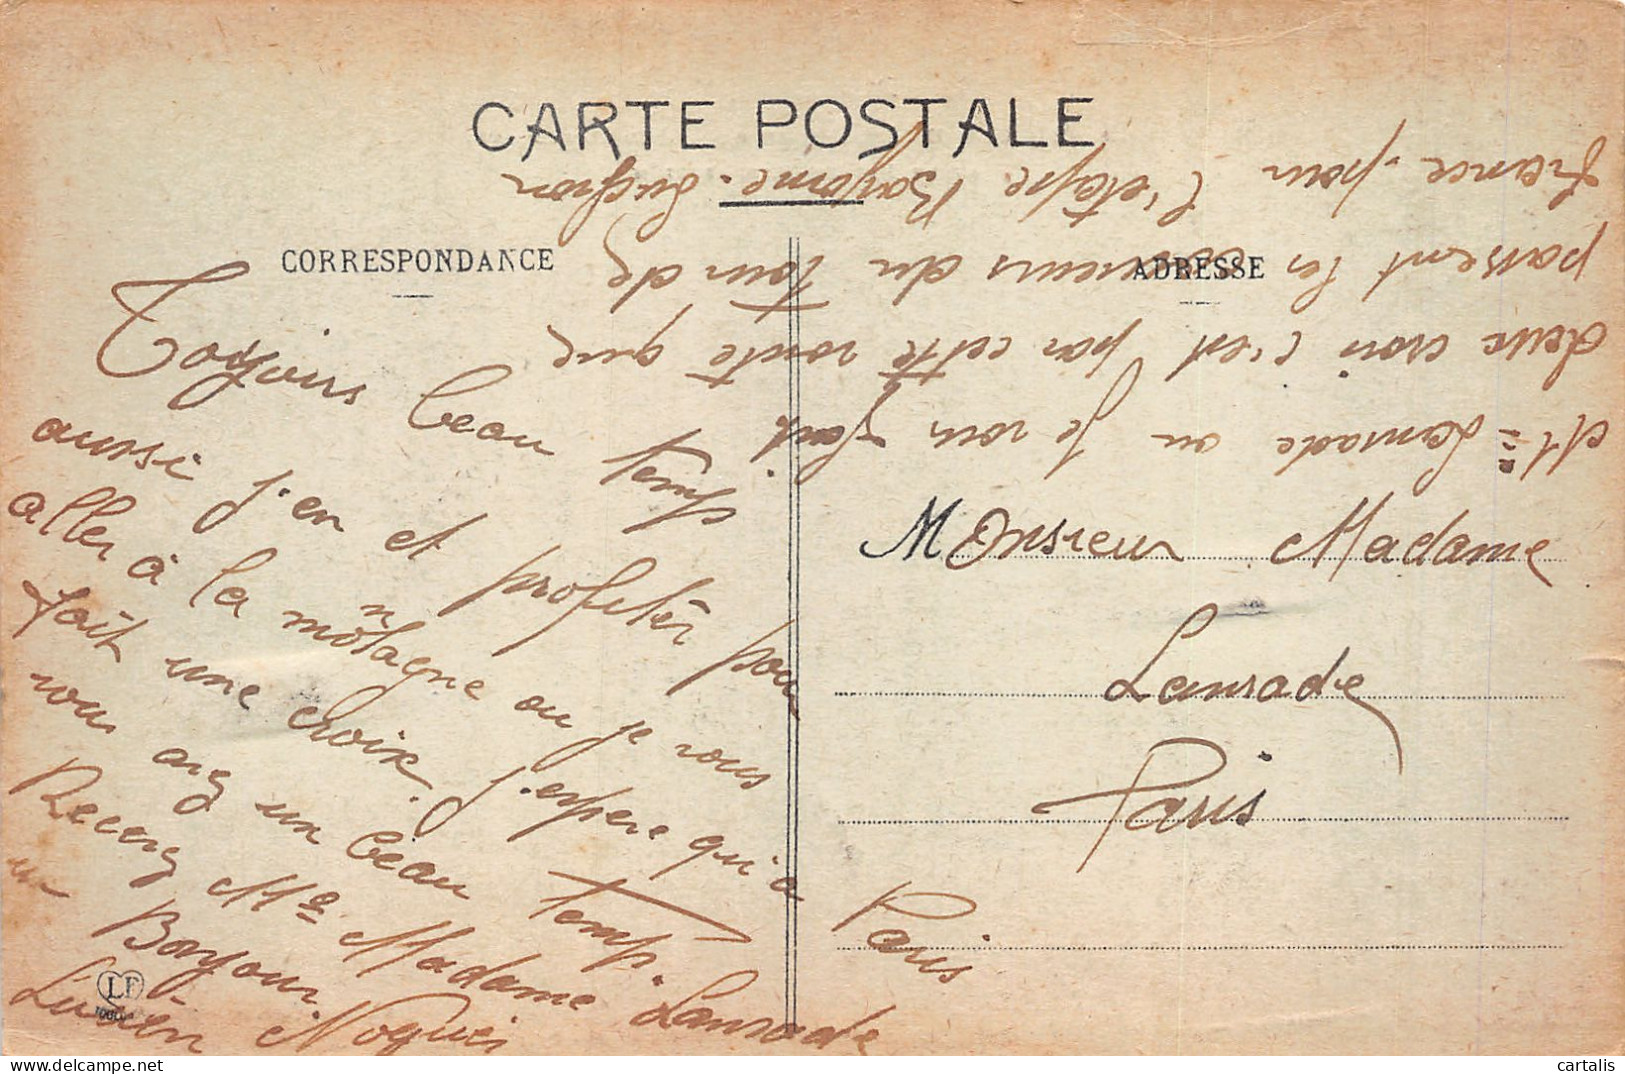 CARTE POSTALE
CORRESPONDANCE
ADRESSE
Toujours beau temps
aussi j'en et profitér pour
aller à la môtagne ou je vous
n
fait une croix. j'espere qu'a
vous avez un beau temp.
Recevez Mr Madame Lanrade Paris
un Bonjour
Lucien Noguès
Mr Lanrade ou je vous fait
deux croix c'est par cette route que
passent les coureurs du tour de
france. pour l'etape Bayonne-Luchon
Monsieur Madame
Lanrade
Paris
LF
TOULOUSE
cartalis